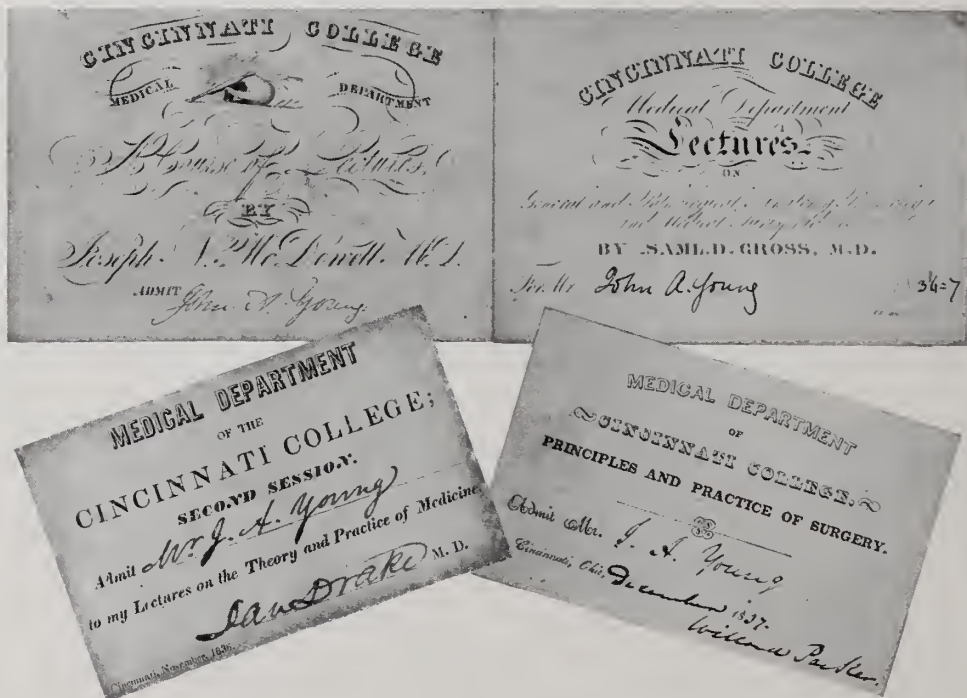 CINCINNATI COLLEGE
MEDICAL DEPARTMENT
A Course of Lectures,
BY
Joseph. N. McDowell. M.D.
ADMIT John A. Young.
CINCINNATI COLLEGE
Medical Department
Lectures.
ON
General and
and
BY SAML. D. GROSS, M.D.
For Mr John A. Young
MEDICAL DEPARTMENT
OF THE
CINCINNATI COLLEGE;
SECOND SESSION.
Admit Mr. J. A. Young
to my Lectures on the Theory and Practice of Medicine,
Dan Drake M. D.
Cincinnati, November, 1836.
MEDICAL DEPARTMENT
OF
CINCINNATI COLLEGE.
PRINCIPLES AND PRACTICE OF SURGERY.
Admit Mr. J. A. Young
Cincinnati, Ohio, December 1837.
Willard Parker.